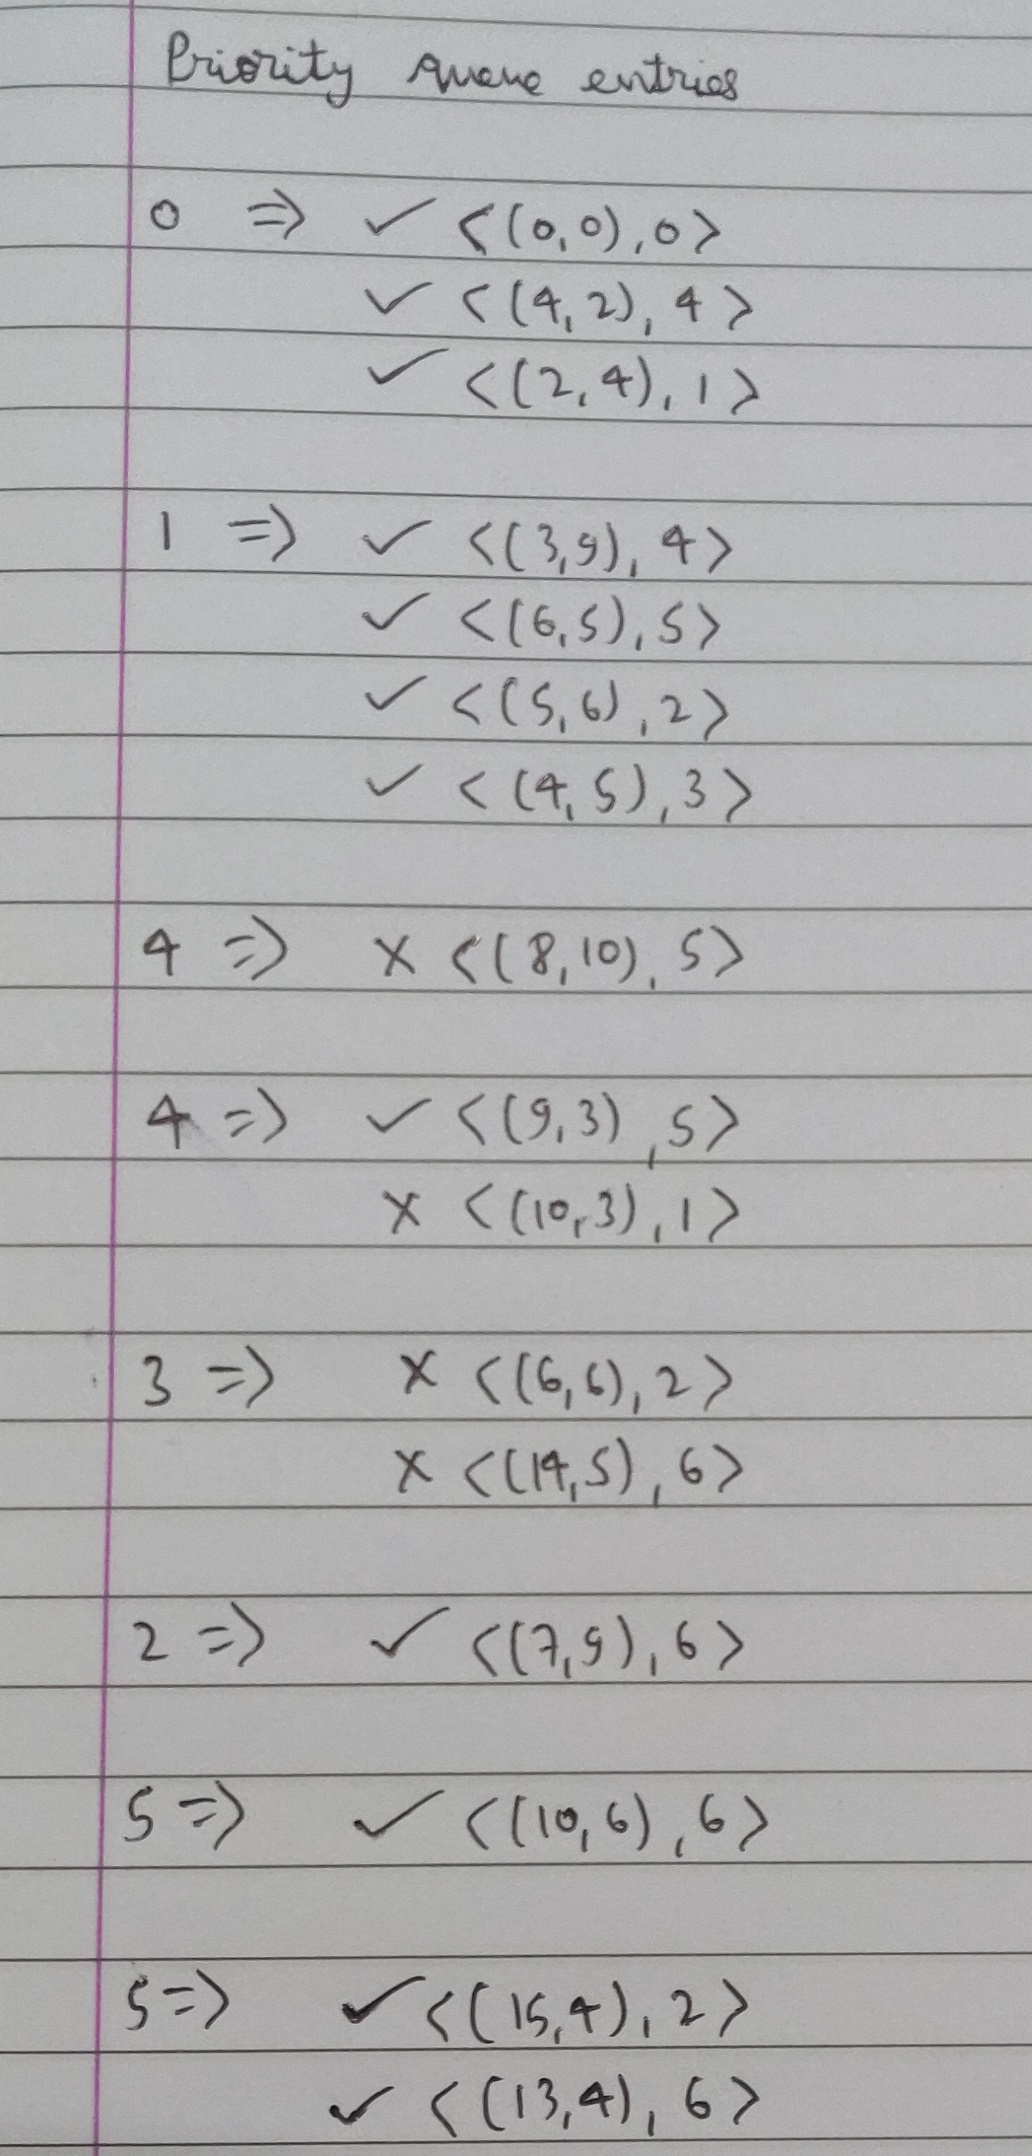 Priority Queue entries
0 => ✓ <(0,0),0>
✓ <(4,2),4>
✓ <(2,4),1>
1 => ✓ <(3,9),4>
✓ <(6,5),5>
✓ <(5,6),2>
✓ <(4,5),3>
4 => x <(8,10),5>
4 => ✓ <(9,3),5>
x <(10,3),1>
3 => x <(6,6),2>
x <(14,5),6>
2 => ✓ <(7,9),6>
5 => ✓ <(10,6),6>
5 => ✓ <(15,4),2>
✓ <(13,4),6>